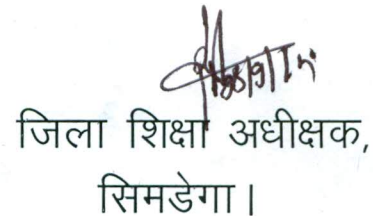 जिला शिक्षा अधीक्षक,
सिमडेगा।